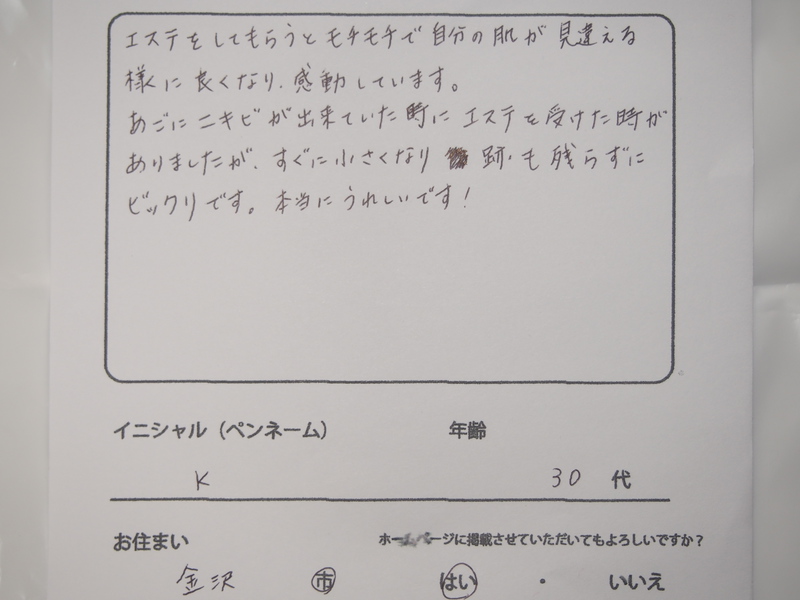 エステをしてもらうとモチモチで自分の肌が見違える
様に良くなり、感動しています。
あごにニキビが出来ていた時にエステを受けた時が
ありましたが、すぐに小さくなり 跡も残らずに
ビックリです。本当にうれしいです!
イニシャル（ペンネーム） 年齢
K 30 代
お住まい ホームページに掲載させていただいてもよろしいですか？
金沢 市 はい ・ いいえ